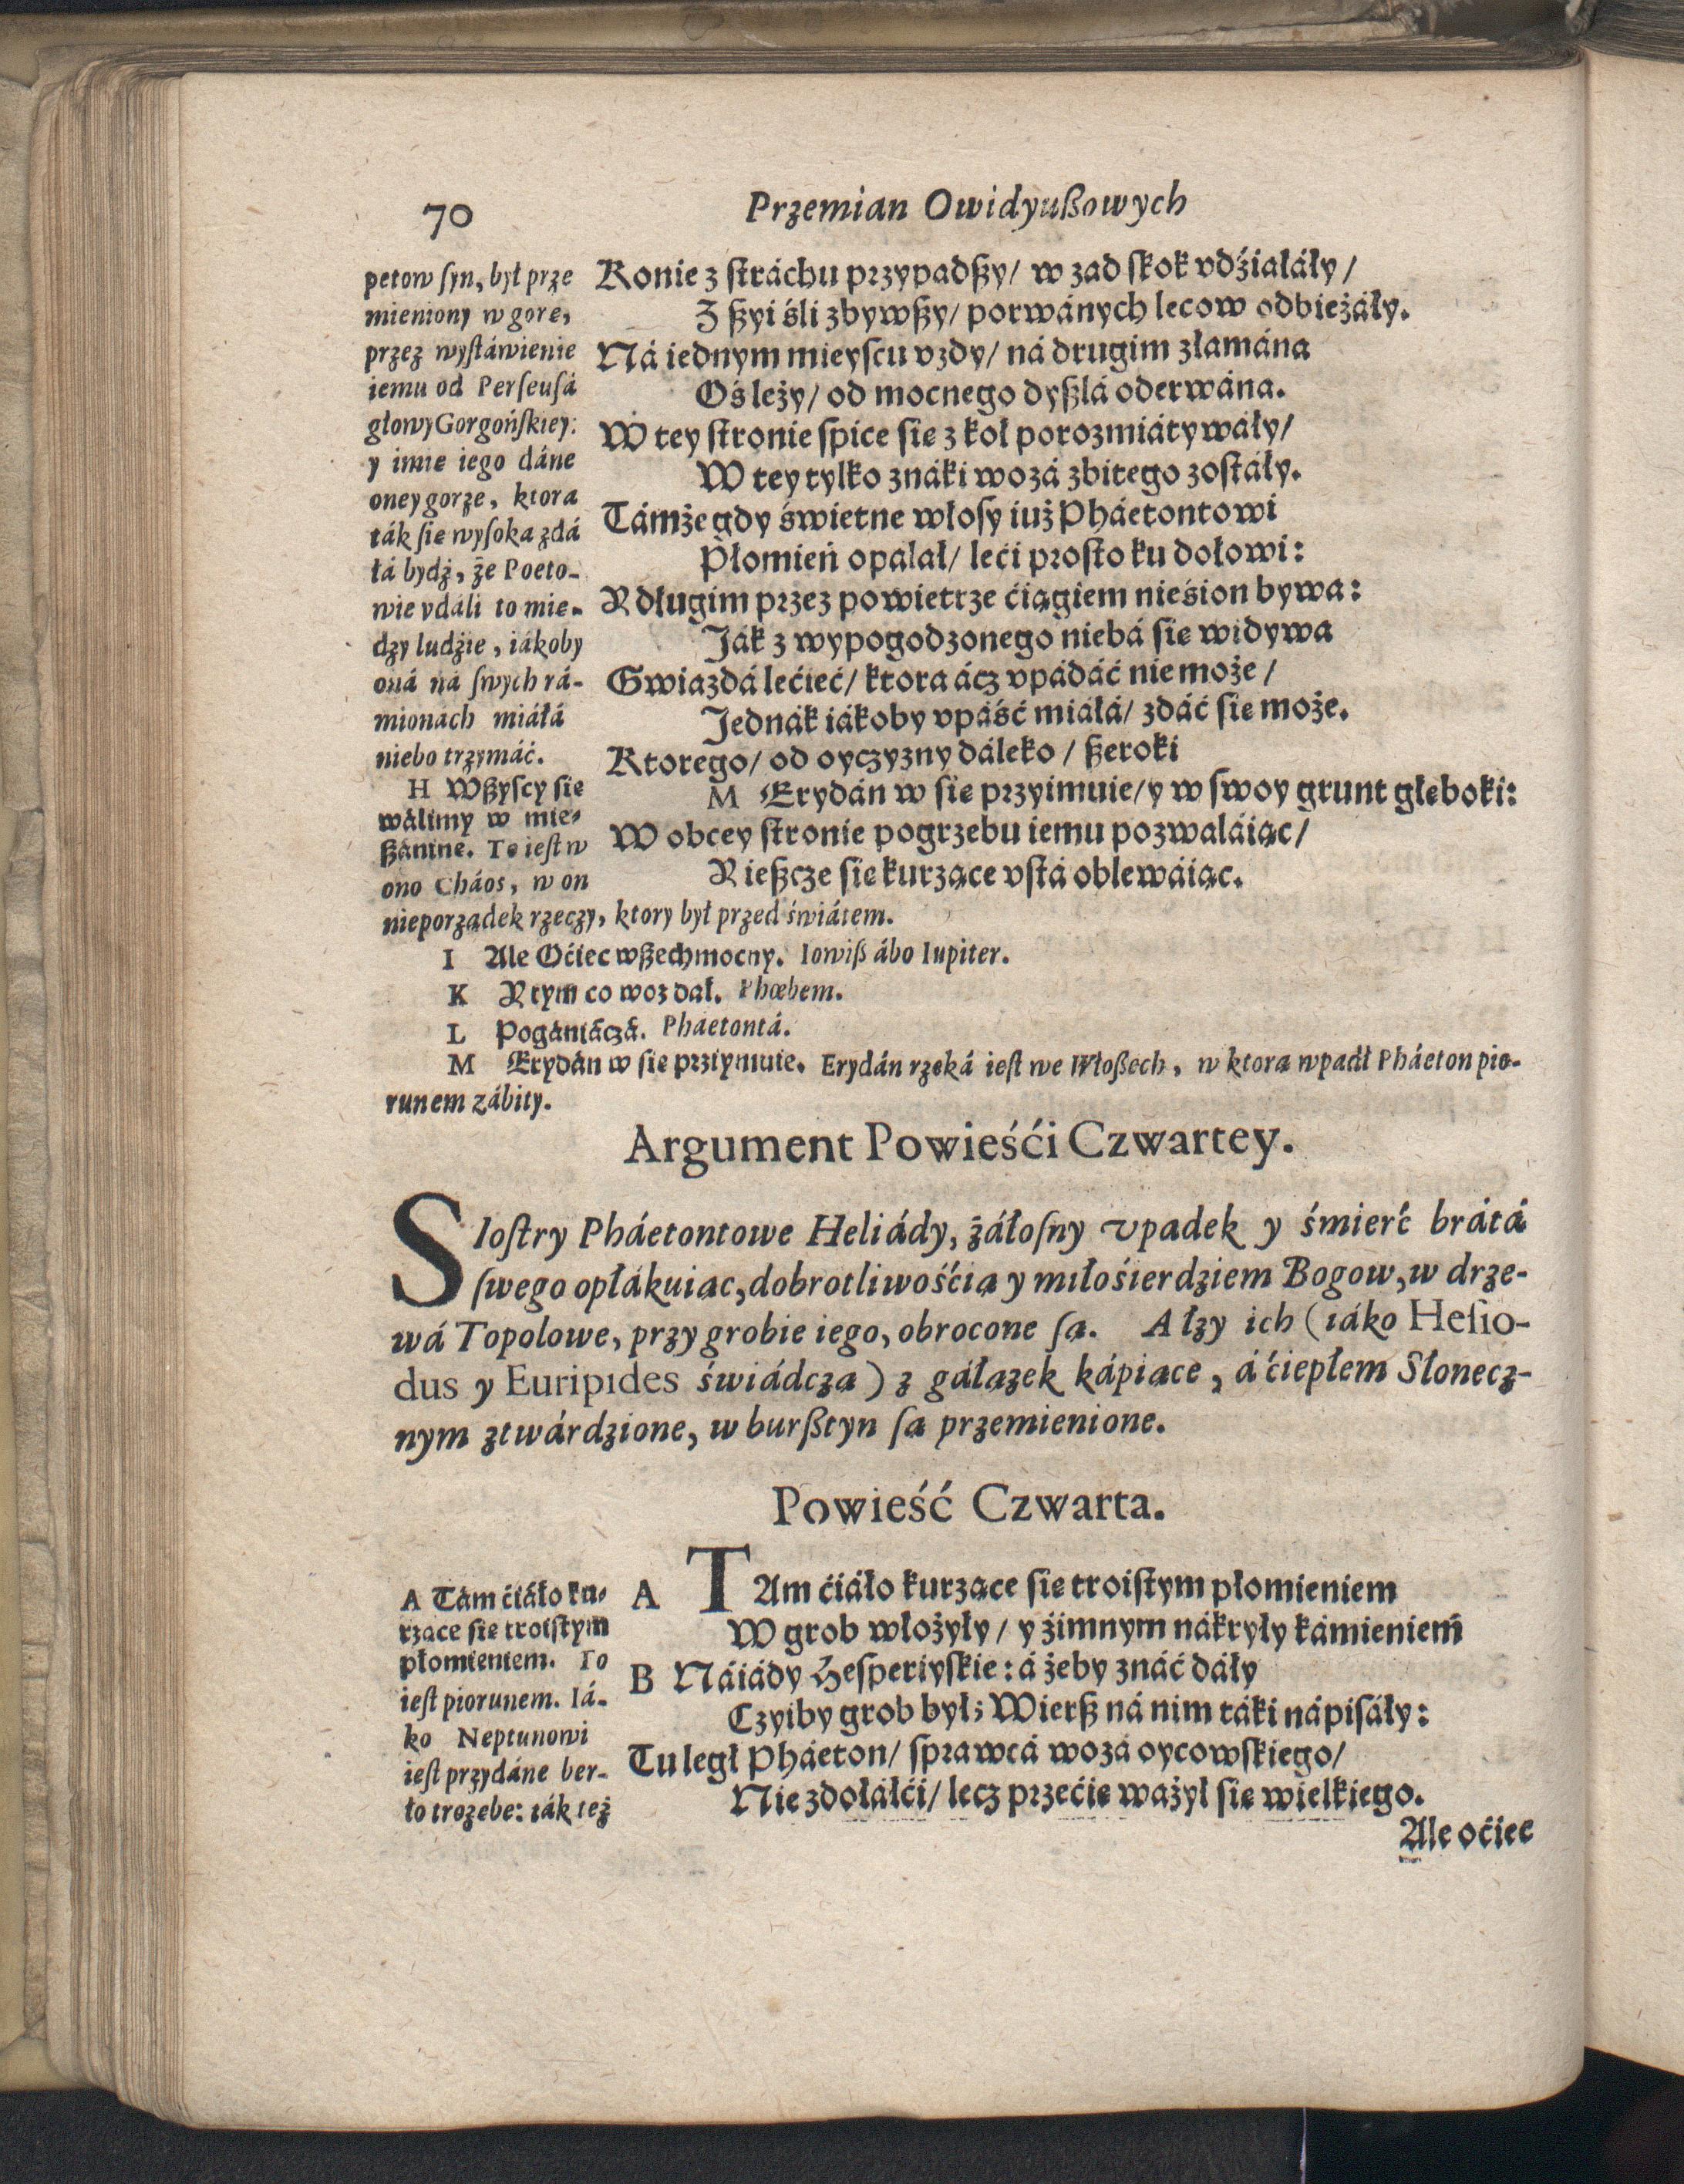 70
Przemian Owidyußowych
petow ſyn, był prze
mieniony w gorę,
przez wyſtáwienie
iemu od Perſeuſá
głowy Gorgońſkiey:
y imię iego dáne
oney gorze, ktora
ták ſie wyſoka zdá
łá bydź, że Poeto-
wie vdáli to mie-
dzy ludźie, iákoby
oná ná ſwych rá-
mionách miáłá
niebo trzymáć.
H Wßyſcy ſie
wálimy w mie-
ßáninę. To ieſt w
ono Cháos, w on
nieporządek rzeczy, ktory był przed świátem.
Konie z ſtráchu przypadßy/ w zad ſkok vdźiałáły/
Z ßyi śli zbywßy/ porwánych lecow odbieżáły.
Ná iednym mieyſcu vzdy/ ná drugim złamána
Oś leży/ od mocnego dyßlá oderwána.
W tey ſtronie ſpice ſie z koł porozmiátywáły/
W tey tylko znáki wozá zbitego zoſtáły.
Támże gdy świetne włoſy iuż Pháetontowi
Płomień opalał/ leći proſto ku dołowi:
Y długim przez powietrze ćiągiem nieśion bywa:
Ják z wypogodzonego niebá ſie widywa
Gwiazdá lećieć/ ktora ácz vpádáć nie może/
Jednák iákoby vpáść miáłá/ zdáć ſie może.
Ktorego/ od oyczyzny dáleko/ ßeroki
M Erydán w ſie przyimuie/ y w ſwoy grunt głeboki:
W obcey ſtronie pogrzebu iemu pozwaláiąc/
Y ießcze ſie kurzące vſtá oblewáiąc.
I Ale Oćiec wßechmocny. Iowiß ábo Iupiter.
K Y tym co woz dał. Phœbem.
L Pogániáczá. Pháetontá.
M Erydán w ſie prziymuie. Erydán rzeká ieſt we Włoßech, w ktorą wpadł Pháeton pio-
runem zábity.
Argument Powieśći Czwartey.
Sioſtry Pháetontowe Heliády, żáłoſny vpadek y śmierć brátá
ſwego opłákuiąc, dobrotliwośćią y miłośierdziem Bogow, w drze-
wá Topolowe, przy grobie iego, obrocone ſą. A łzy ich (iáko Heſio-
dus y Euripides świádczą) z gáłązek kápiące, á ćiepłem Słonecz-
nym ztwárdzione, w burßtyn ſą przemienione.
Powieść Czwarta.
A Tám ćiáło ku-
rzące ſie troiſtym
płomieniem. To
ieſt piorunem. Iá-
ko Neptunowi
ieſt przydáne ber-
ło trozębe: ták też
A TAm ćiáło kurzące ſie troiſtym płomieniem
W grob włożyły/ y źimnym nákryły kámieniem
B Náiády Heſperiyſkie: á żeby znáć dáły
Czyiby grob był; Wierß ná nim táki nápiſáły:
Tu legł Pháeton/ ſprawcá wozá oycowſkiego/
Nie zdołáłći/ lecz przećie ważył ſie wielkiego.
Ale oćiec